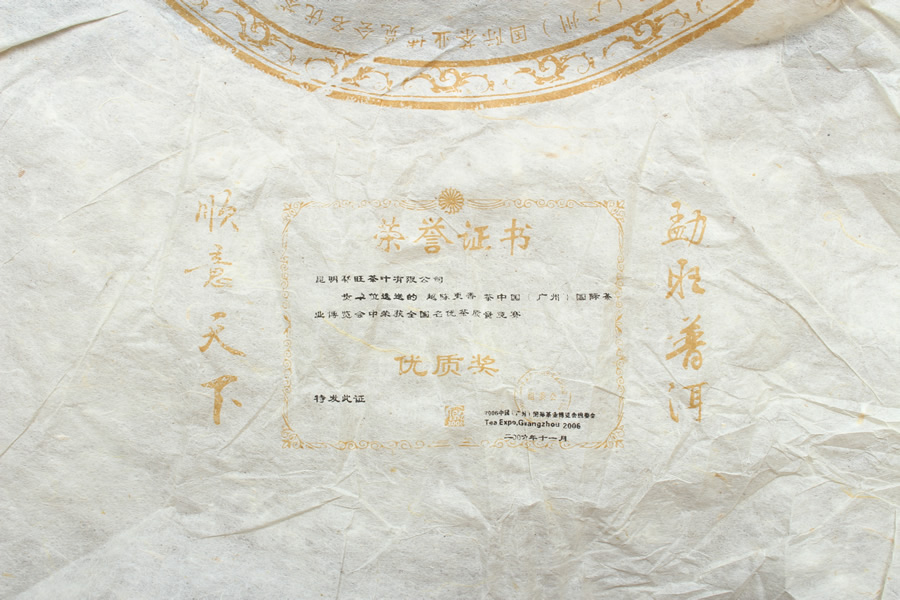 (广州)国际茶业博览会名优茶
顺意天下
勐旺普洱
荣誉证书
昆明勐旺茶叶有限公司
贵单位选送的 茶中国(广州)国际茶
业博览会中荣获全国名优茶质量竞赛
优质奖
特发此证
2006中国(广州)国际茶业博览会组委会
Tea Expo,Guangzhou 2006
二00六年十一月